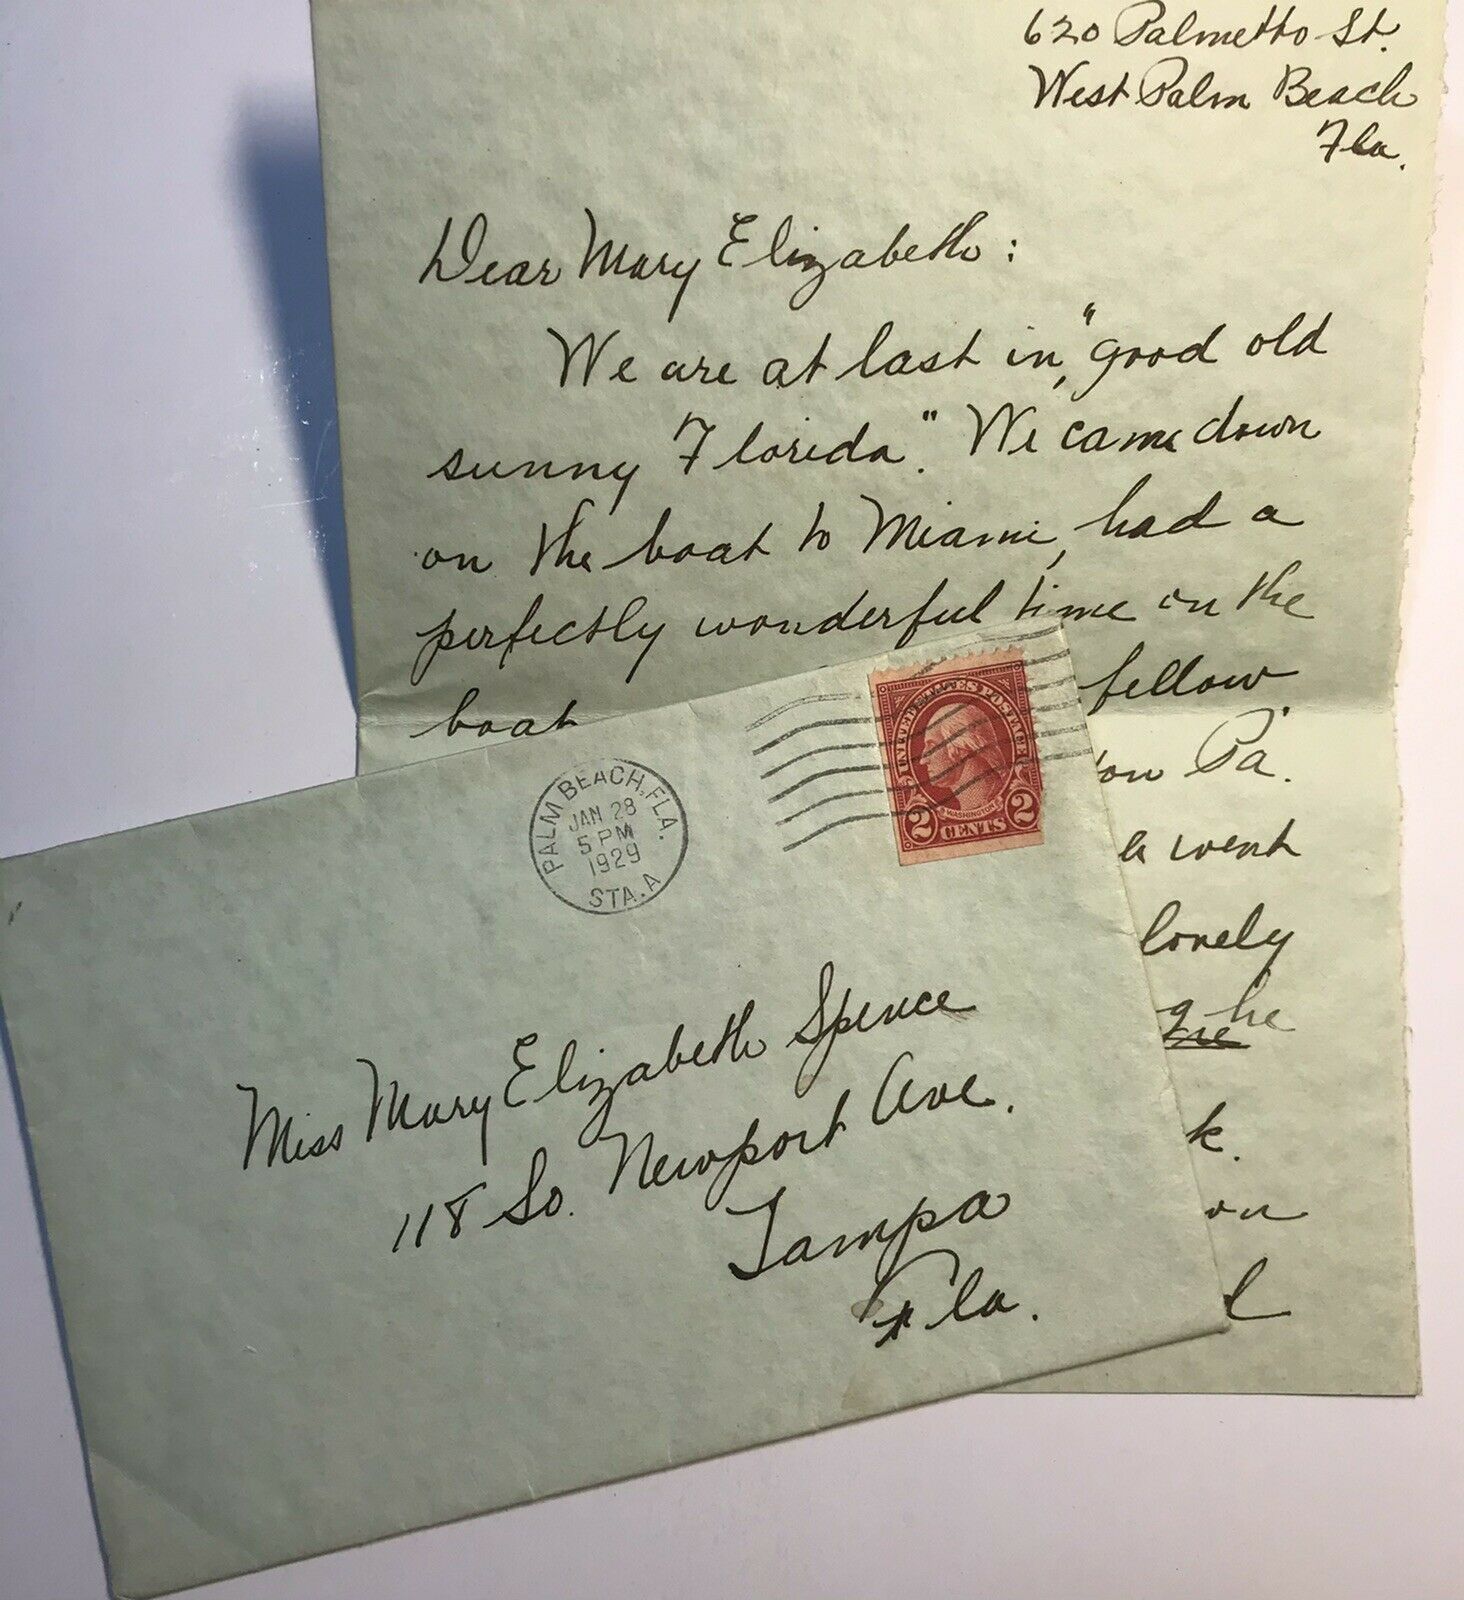 620 Palmetto St.
West Palm Beach
Fla.
Dear Mary Elizabeth:
We are at last in, "good old
sunny Florida." We came down
on the boat to Miami, had a
perfectly wonderful time on the
boat
fellow
on Pa.
went
lovely
he
k.
on
PALM BEACH, FLA.
JAN 28
5 PM
1929
STA. A
UNITED STATES POSTAGE
WASHINGTON
2 CENTS 2
Miss Mary Elizabeth Spence
118 So. Newport Ave.
Tampa
Fla.